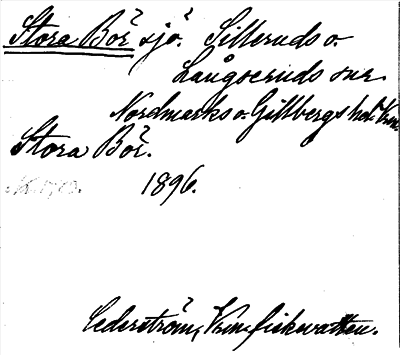 Stora Bör sjö. Silleruds o.
Långseruds snr
Nordmarks o. Gillbergs hd. Vrm.
Stora Bör.
1896.
Cederström, Vrm. fiskevatten.